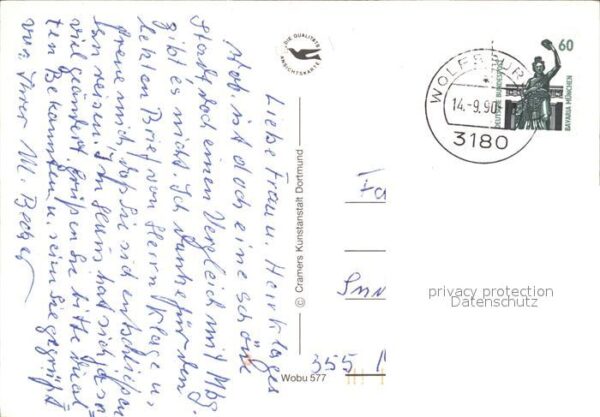 Liebe Frau u. Herr Klages
Wob. ist doch eine schöne
Stadt, doch einen Vergleich mit Mbg.
gibt es nicht. Ich danke für den
lieben Brief von Herrn Klages u.
freue mich, daß Sie sich entschließen
zu reisen. Im Heim hat sich so
viel geändert. Grüßen Sie bitte die al-
ten Bekannten u. seien Sie gegrüßt
von Ihrer M. Becher
DIE QUALITÄTS
ANSICHTSKARTE
© Cramers Kunstanstalt Dortmund
Wobu 577
WOLFSBUR
14.-9.90
3180
60
DEUTSCHE BUNDESPOST
BAVARIA MÜNCHEN
Fa
355
privacy protection
Datenschutz